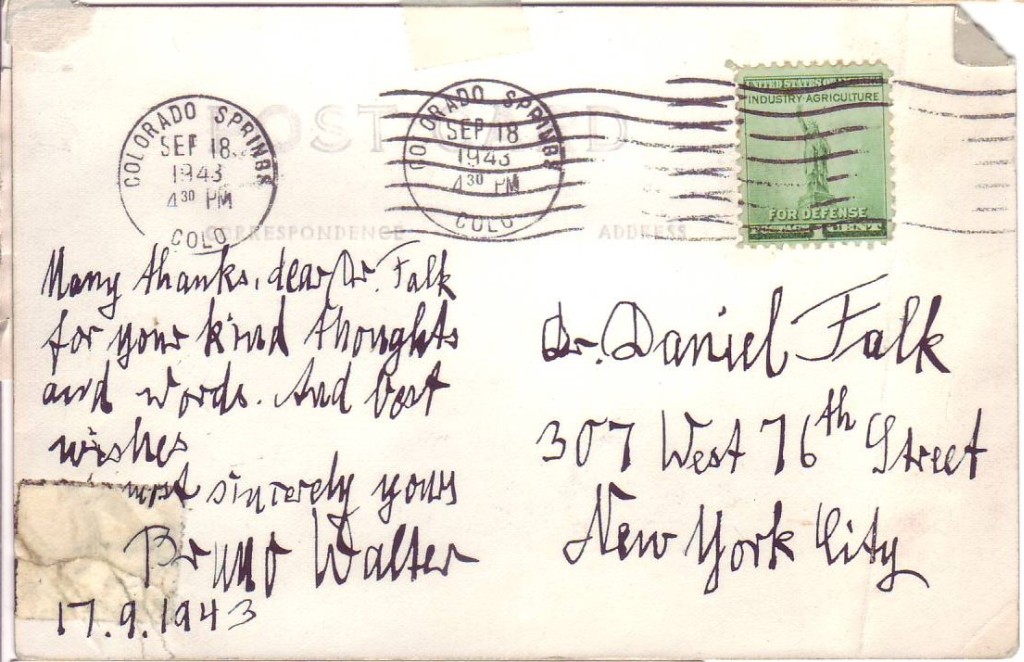 POST CARD
COLORADO SPRINGS
SEP 18
1943
4 30 PM
COLO
COLORADO SPRINGS
SEP 18
1943
4 30 PM
COLO
UNITED STATES OF AMERICA
INDUSTRY·AGRICULTURE
FOR DEFENSE
CORRESPONDENCE
ADDRESS
Many thanks, dear Dr. Falk
for your kind thoughts
and words. And best
wishes
most sincerely yours
Bruno Walter
17.9.1943
Dr. Daniel Falk
307 West 76th Street
New York City